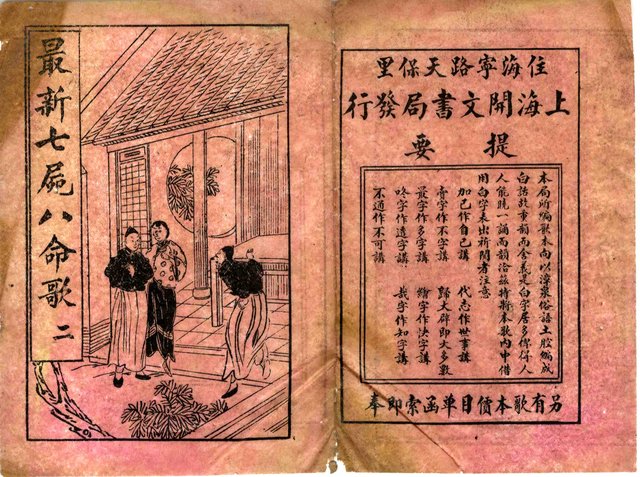 住海寧路天保里
上海開文書局發行
提要
本局所編歌本向以漳泉俗語土腔編成
白話故事韻而念義是白字居多俾得人
人能曉一誦而韻洽茲特採本歌內中借
用白字表出祈閱者注意
加己作自己講 代志作世事講
字作不字講 歸大碑即大多數
最字作多字講 字作快字講
字作這字講 哉字作知字講
不通作不可講
另有歌本價目單函索即奉
最新七屍八命歌 二